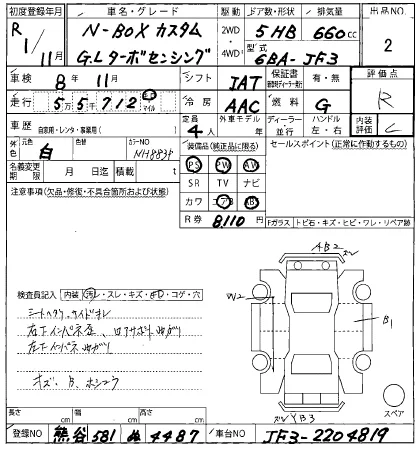 初度登録年月 車名・グレード 駆動 ドア数・形状 排気量 出品NO
R1/11月 N-BOX カスタム 2WD・4WD 5HB 660cc 2
G.Lターボセンシング 型式 6BA-JF3
車検 8年 11月 シフト IAT 保証書 有・無 評価点
走行 5万5千712 km マイル 冷房 AAC 燃料 G R
車歴 自家用・レンタ・事業用( ) 定員 4人 外車モデル 年 ディーラー・並行 ハンドル 左・右 内装評価 C
外色 元色 白 色替 カラーNO NH883P 装備品(純正品に限る) セールスポイント(正常に作動するもの)
名義変更期限 月 日迄 積載 t PS PW AW
SR TV ナビ
注意事項(欠品・修復・不具合箇所および状態) カワ エアB ABS
R券 8,110円 Fガラス トビ石・キズ・ヒビ・ワレ・リペア跡
AB2
検査員記入 内装 汚レ・スレ・キズ・コゲ・穴 W2
シート B1
左下インパネ
キズ・B
B3
スペア
長さ cm 幅 cm 高さ cm
登録NO 熊谷 581 ぬ 4487 車台NO JF3-2204819